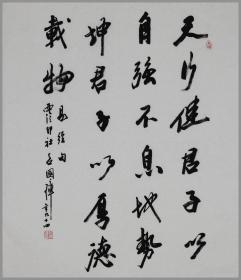 天行健君子以
自強不息地勢
坤君子以厚德
載物
易經句